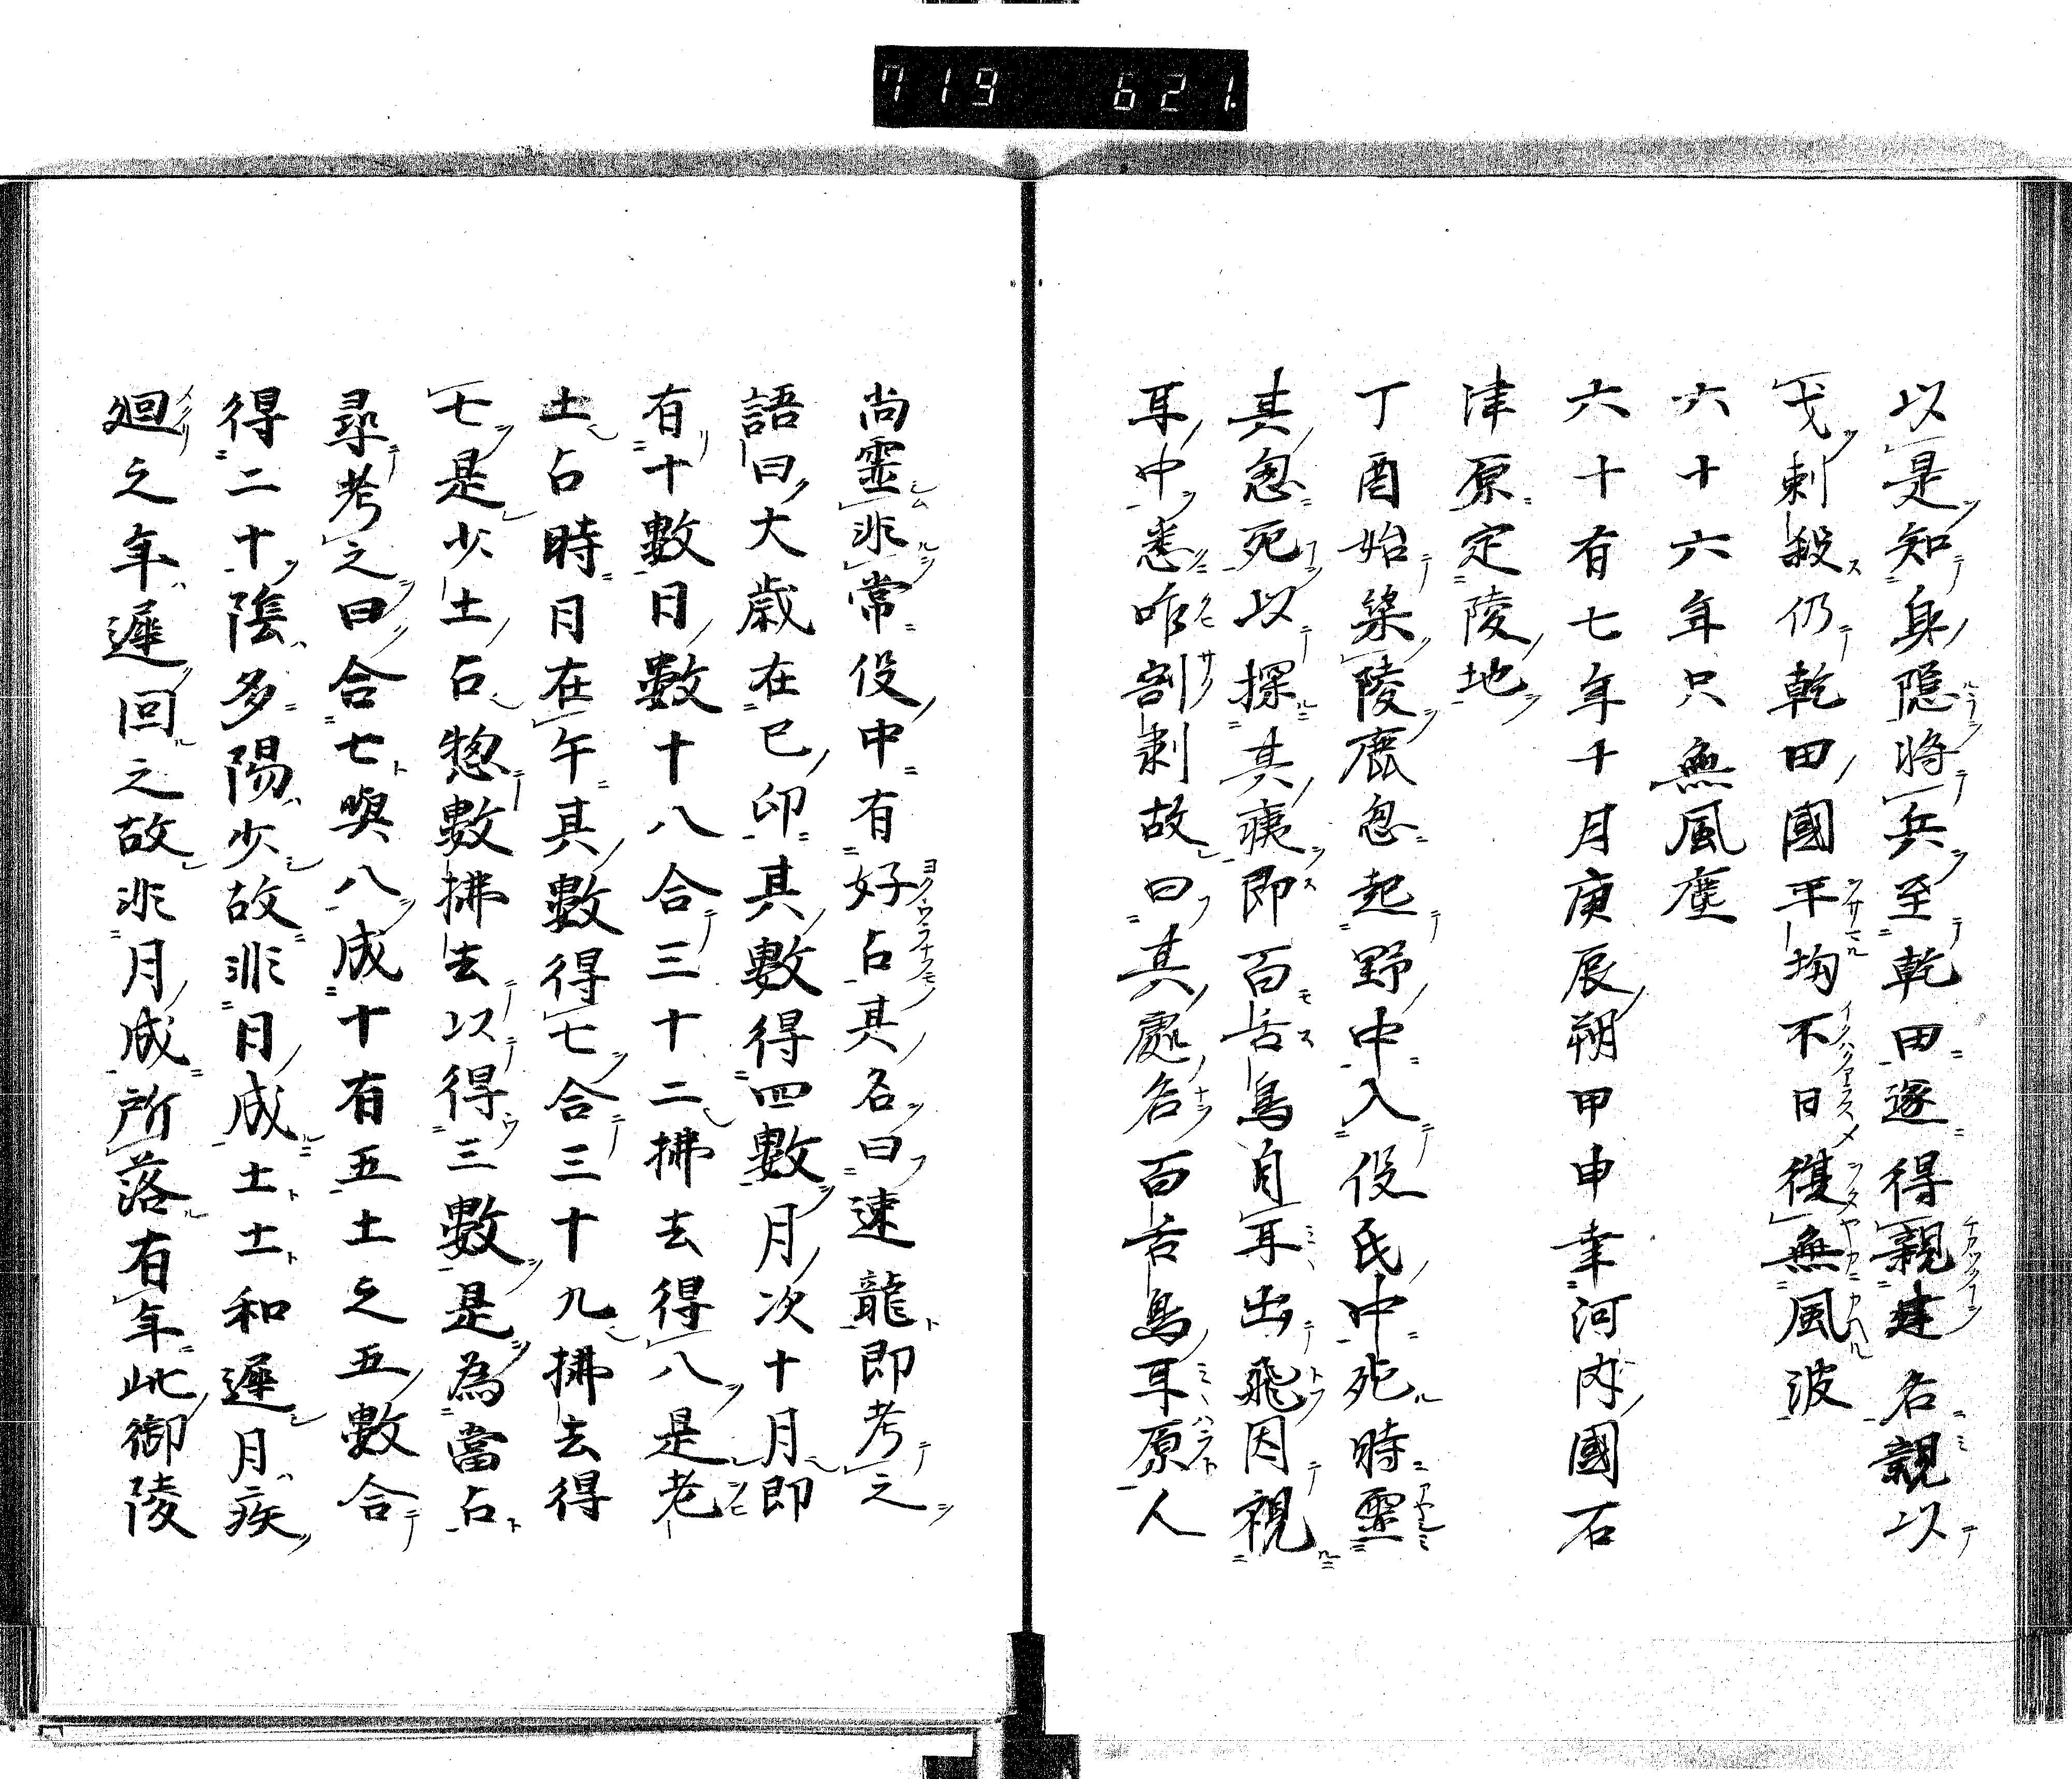 719 621.
以是知身隠将兵至乾田遂得親建名親以
戈刺殺仍乾田國平均不日復無風波
六十六年只無風塵
六十有七年十月庚辰朔甲申幸河内國石
津原定陵地
丁酉始築陵鹿忽起野中入役民中死時霊
其忽死以探其痍即百舌鳥自耳出飛因視
耳中悉咋割剥故曰其處名百舌鳥耳原人
尚霊非常役中有好占其名曰速龍即考之
語曰大歳在巳卯其數得四數月次十月即
有十數日數十八合三十二拂去得八是老
土占時月在午其數得七合三十九拂去得
七是少土占惣數拂去以得三數是為當占
尋考之曰合七與八成十有五土之五數合
得二十陰多陽少故非日成土土和遲月疾
廻之年遲回之故非月成所落有年此御陵